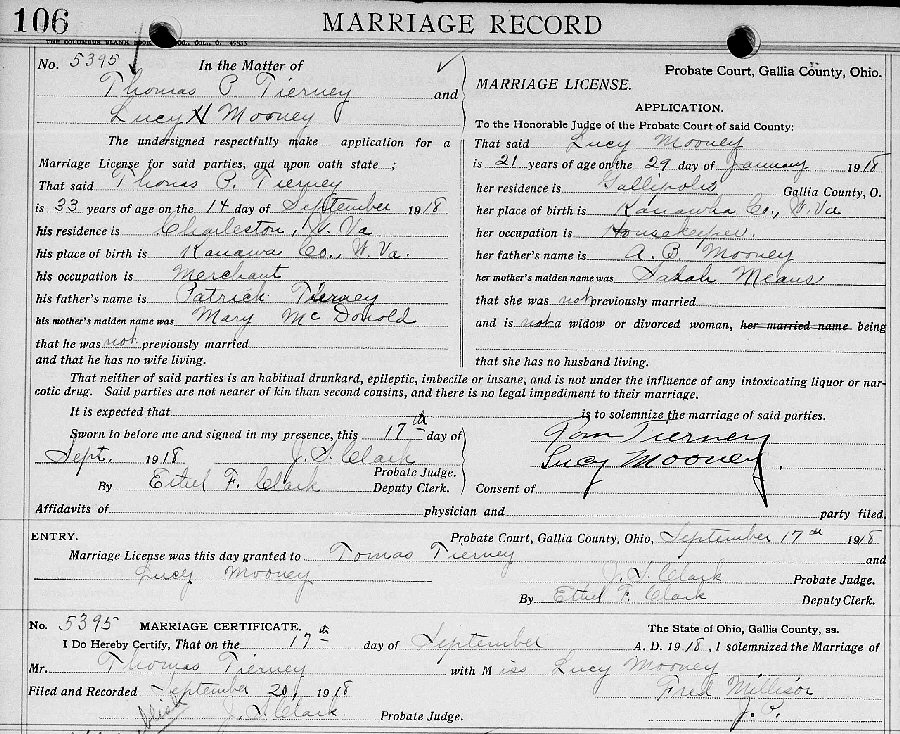 106 MARRIAGE RECORD
No. 5395 In the Matter of
Thomas P. Tierney and
Lucy H Mooney
The undersigned respectfully make application for a
Marriage License for said parties, and upon oath state ;
That said Thomas P. Tierney
is 33 years of age on the 14 day of September 1918
his residence is Charleston, W. Va
his place of birth is Kanawa Co., W. Va.
his occupation is Merchant
his father's name is Patrick Tierney
his mother's maiden name was Mary McDonold
that he was not previously married
and that he has no wife living.
Probate Court, Gallia County, Ohio.
MARRIAGE LICENSE.
APPLICATION.
To the Honorable Judge of the Probate Court of said County:
That said Lucy Mooney
is 21 years of age on the 29 day of January 1918
her residence is Gallipolis Gallia County, O.
her place of birth is Kanawha Co., W. Va
her occupation is Housekeeper.
her father's name is A. B. Mooney
her mother's maiden name was Sarah Means
that she was not previously married
and is not a widow or divorced woman, her married name being
that she has no husband living.
That neither of said parties is an habitual drunkard, epileptic, imbecile or insane, and is not under the influence of any intoxicating liquor or nar-
cotic drug. Said parties are not nearer of kin than second cousins, and there is no legal impediment to their marriage.
It is expected that is to solemnize the marriage of said parties.
Sworn to before me and signed in my presence, this 17th day of
Sept. 1918. J. S. Clark
Probate Judge.
By Ethel F. Clark Deputy Clerk.
Tom Tierney
Lucy Mooney.
Consent of
Affidavits of physician and party filed,
ENTRY. Probate Court, Gallia County, Ohio, September 17th 1918
Marriage License was this day granted to Tomas Tierney and
Lucy Mooney
J. S. Clark Probate Judge.
By Ethel F. Clark Deputy Clerk.
No. 5395 MARRIAGE CERTIFICATE. The State of Ohio, Gallia County, ss.
I Do Hereby Certify, That on the 17th day of September A. D. 1918, I solemnized the Marriage of
Mr. Thomas Tierney with Miss Lucy Mooney
Filed and Recorded September 20, 1918 Fred Millisor
J. S. Clark Probate Judge. J. P.